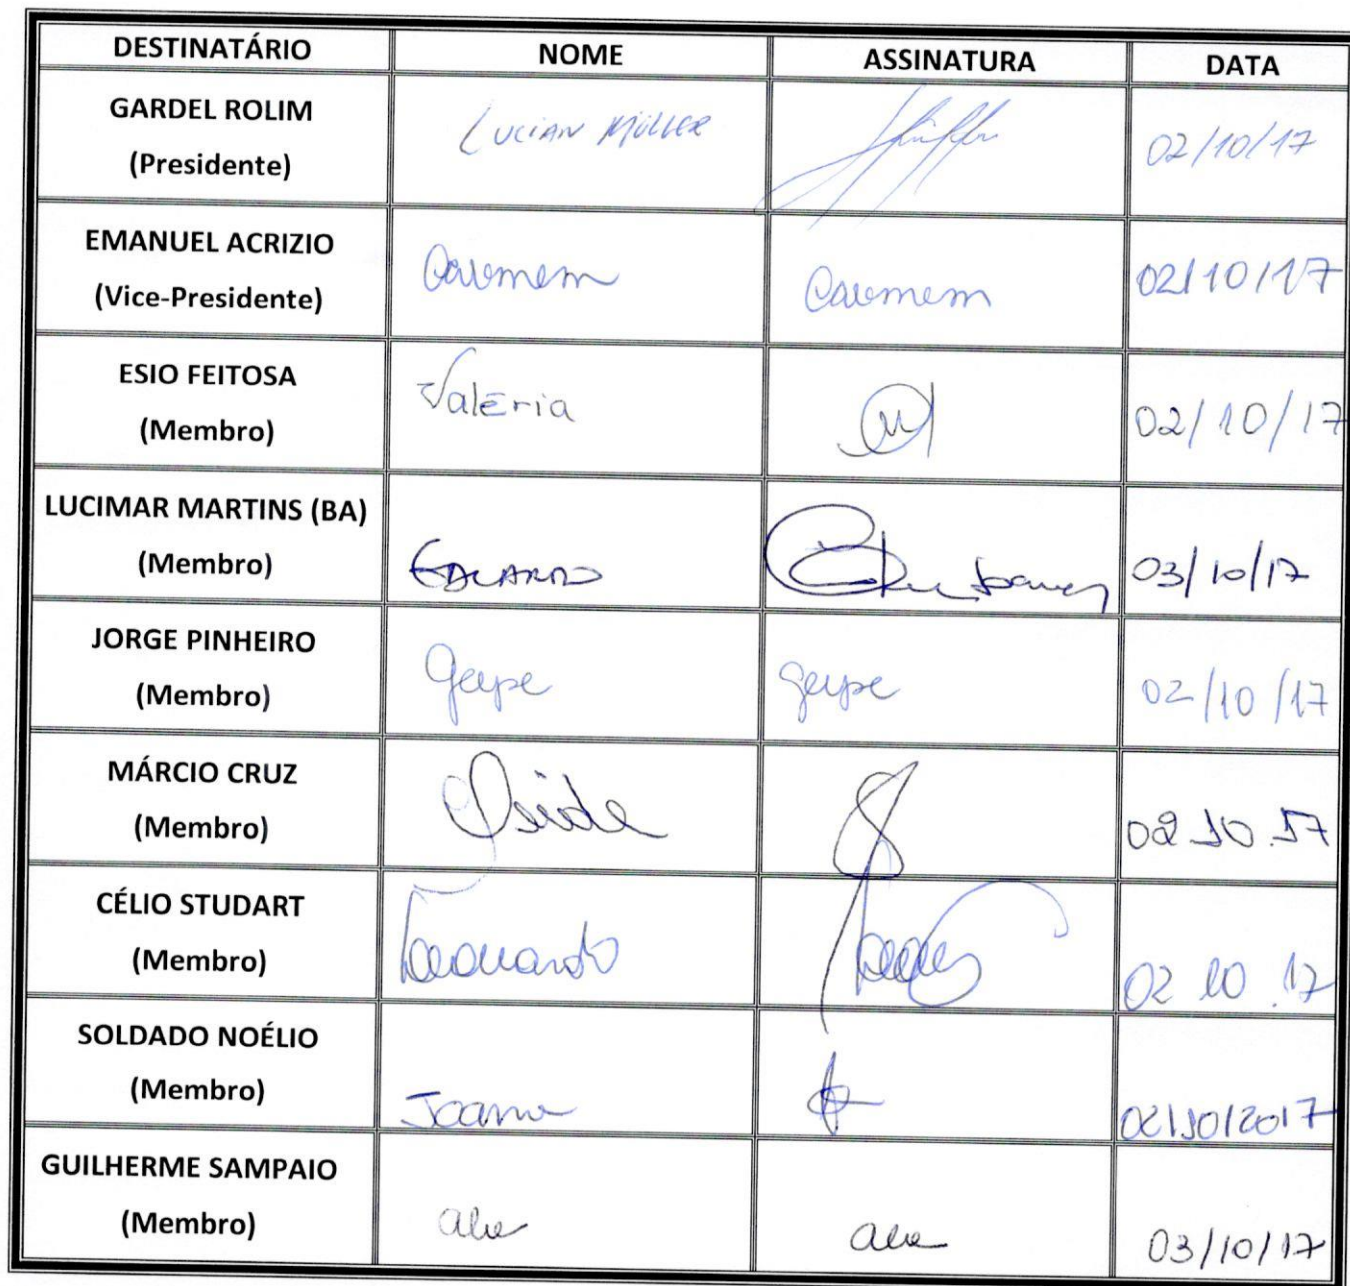 DESTINATÁRIO NOME ASSINATURA DATA
GARDEL ROLIM
(Presidente)
LUCIAN MÜLLER 02/10/17
EMANUEL ACRIZIO
(Vice-Presidente)
Carmem Carmem 02/10/17
ESIO FEITOSA
(Membro)
Valéria 02/10/17
LUCIMAR MARTINS (BA)
(Membro)
03/10/17
JORGE PINHEIRO
(Membro)
02/10/17
MÁRCIO CRUZ
(Membro)
02.10.17
CÉLIO STUDART
(Membro)
Leonardo 02 10.17
SOLDADO NOÉLIO
(Membro)
Joana 02/10/2017
GUILHERME SAMPAIO
(Membro)
03/10/17